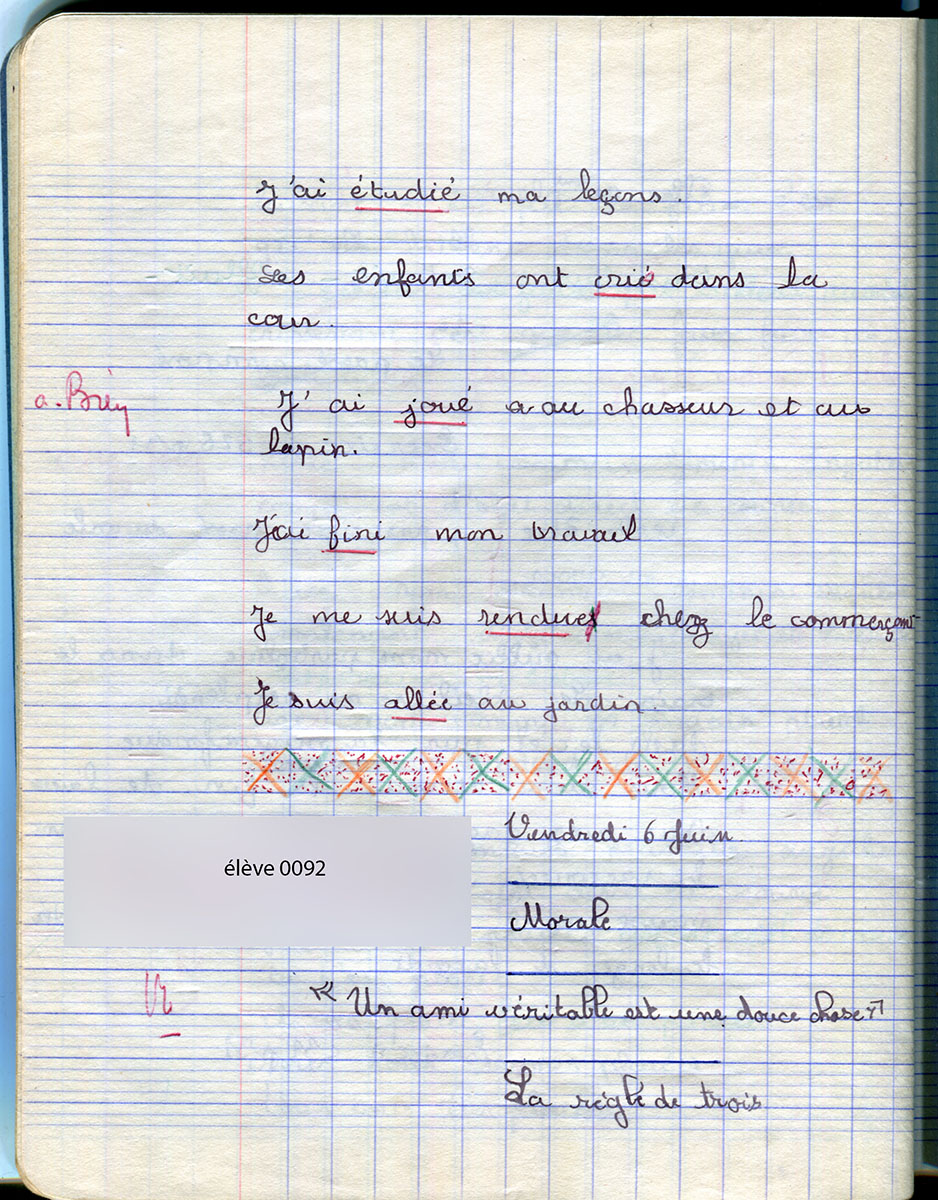 J'ai étudié ma leçons.
Les enfants ont crié dans la
cour.
a. Bien
J'ai joué a au chasseur et au
lapin.
J'ai fini mon travail
Je me suis rendue chez le commerçant
Je suis allée au jardin.
Vendredi 6 Juin
élève 0092
Morale
Vu
« Un ami véritable est une douce chose »
La règle de trois